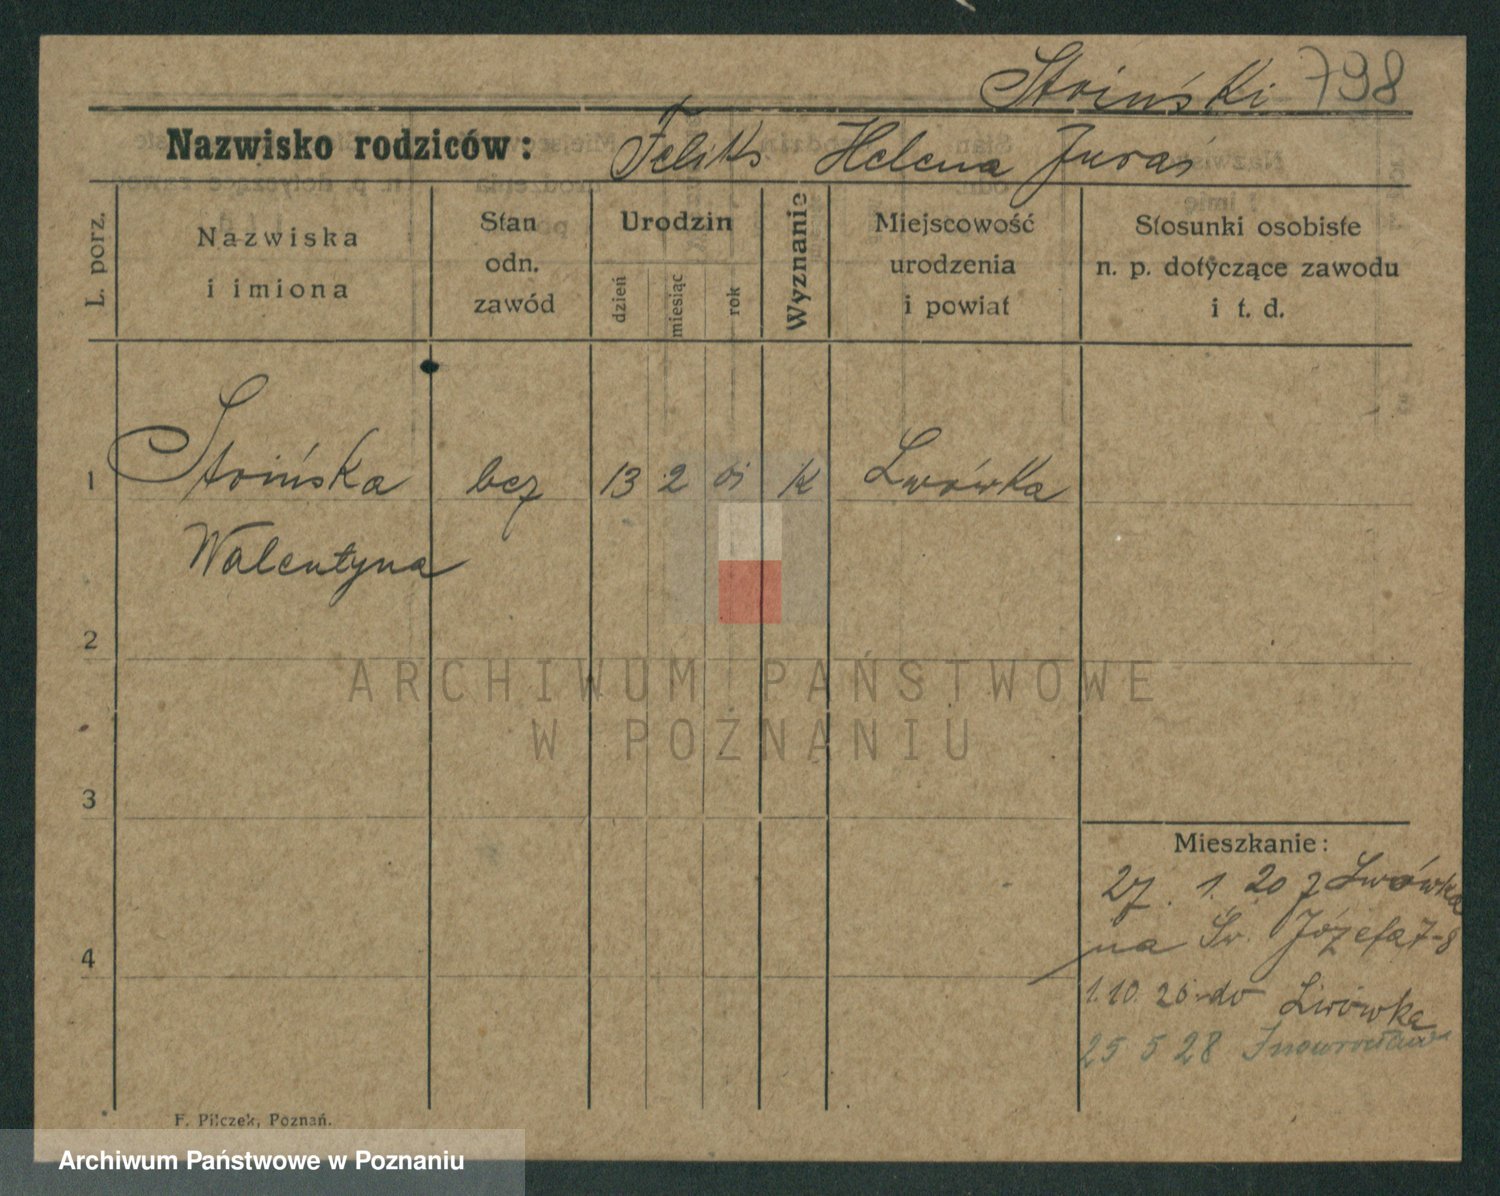 Stoiński 798
Nazwisko rodziców: Feliks Helena Juraś
L. porz.
Nazwiska
i imiona
Stan
odn.
zawód
Urodzin
dzień
miesiąc
rok
Wyznanie
Miejscowość
urodzenia
i powiat
Stosunki osobiste
n. p. dotyczące zawodu
i t. d.
1 Stoińska bez 13 2 01 k Lwówka
Walentyna
2
3
4
Mieszkanie:
27. 1. 20 z Lwówka
na Św. Józefa 7-8
1.10. 26 do Lwówka
25 5 28 Inowrocław
F. Pilczek, Poznań.
ARCHIWUM PAŃSTWOWE
W POZNANIU
Archiwum Państwowe w Poznaniu